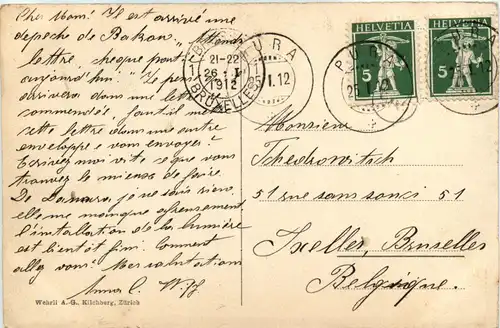 Cher Mons! Il est arrivé une
depeche de Bakou. "Attends
lettre, cheque part
aujourd'hui." Je pense
arrivera dans une lettre
commendée faut-il mettre
cette lettre dans une autre
enveloppe a vous envoyer?
Ecrivez moi vite ce que vous
trouvez le mieux de faire.
De je ne sais rien,
elle me manque afreusement
l'installation de la lumière
est bientôt fini. Comment
allez vous? Mes salutations
Anna C.
Wehrli A.-G., Kilchberg, Zürich
BRUXELLES
1
21-22
26 I
1912
PURA
25 I.12
HELVETIA
5
HELVETIA
5
PURA
25 I.12
Monsieur
Tchedkowitsch
51 rue sans souci 51
Ixelles, Bruxelles
Belgique.